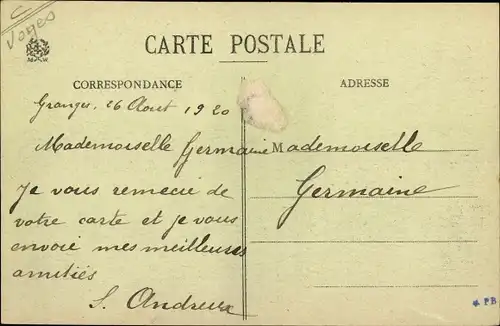 Vosges
CARTE POSTALE
CORRESPONDANCE
Granges, 26 Aout 1920
Mademoiselle Germaine
Je vous remercie de
votre carte et je vous
envoie mes meilleures
amitiés
S. Andreux
ADRESSE
Mademoiselle
Germaine
* PB